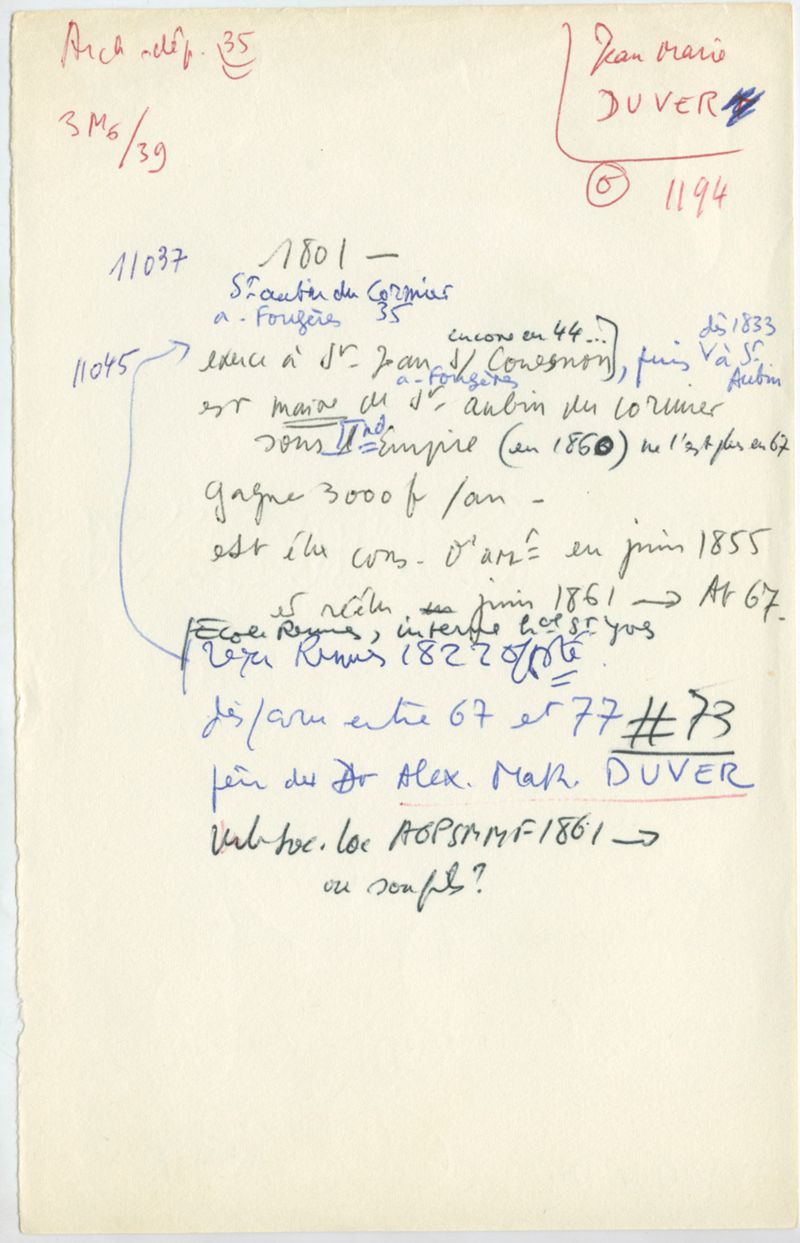 Arch. dép. 35
3 M6/39
Jean Marie
DUVER
O 1194
11037
1801 —
St aubin du Cormier
a - Fougères 35
encore en 44...
dès 1833
11045
exerce à St. Jean s/ Couesnon, puis à St Aubin
a - Fougères
est maire de St aubin du cormier
sous IInd Empire (en 1860) ne l'est plus en 67
gagne 3000 f /an -
est élu cons. d'arrt en juin 1855
et réélu juin 1861 → Ar 67.
Ecole Rennes, interne hal St Yves
reçu Rennes 1822 off. sté.
dès/arru entre 67 et 77 # 73
père du Dr Alex. Math. DUVER
Mb Soc. loc AGPSMMF 1861 →
ou son fils ?